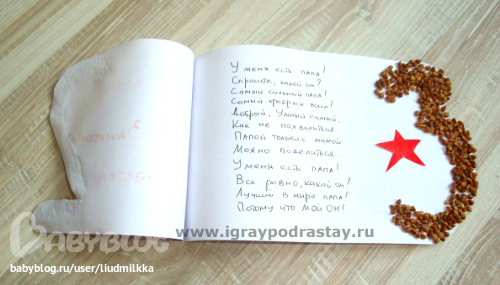 У меня есть папа!
Спросите, какой он?
Самый сильный папа!
Самый храбрый папа!
Добрый, умный самый,
Как не похвалиться
Папой только с мамой
Можно поделиться.
У меня есть папа!
Все равно, какой он!
Лучший в мире папа!
Потому что мой ОН!
www.igraypodrastay.ru
BABYBLOG
babyblog.ru/user/liudmilkka